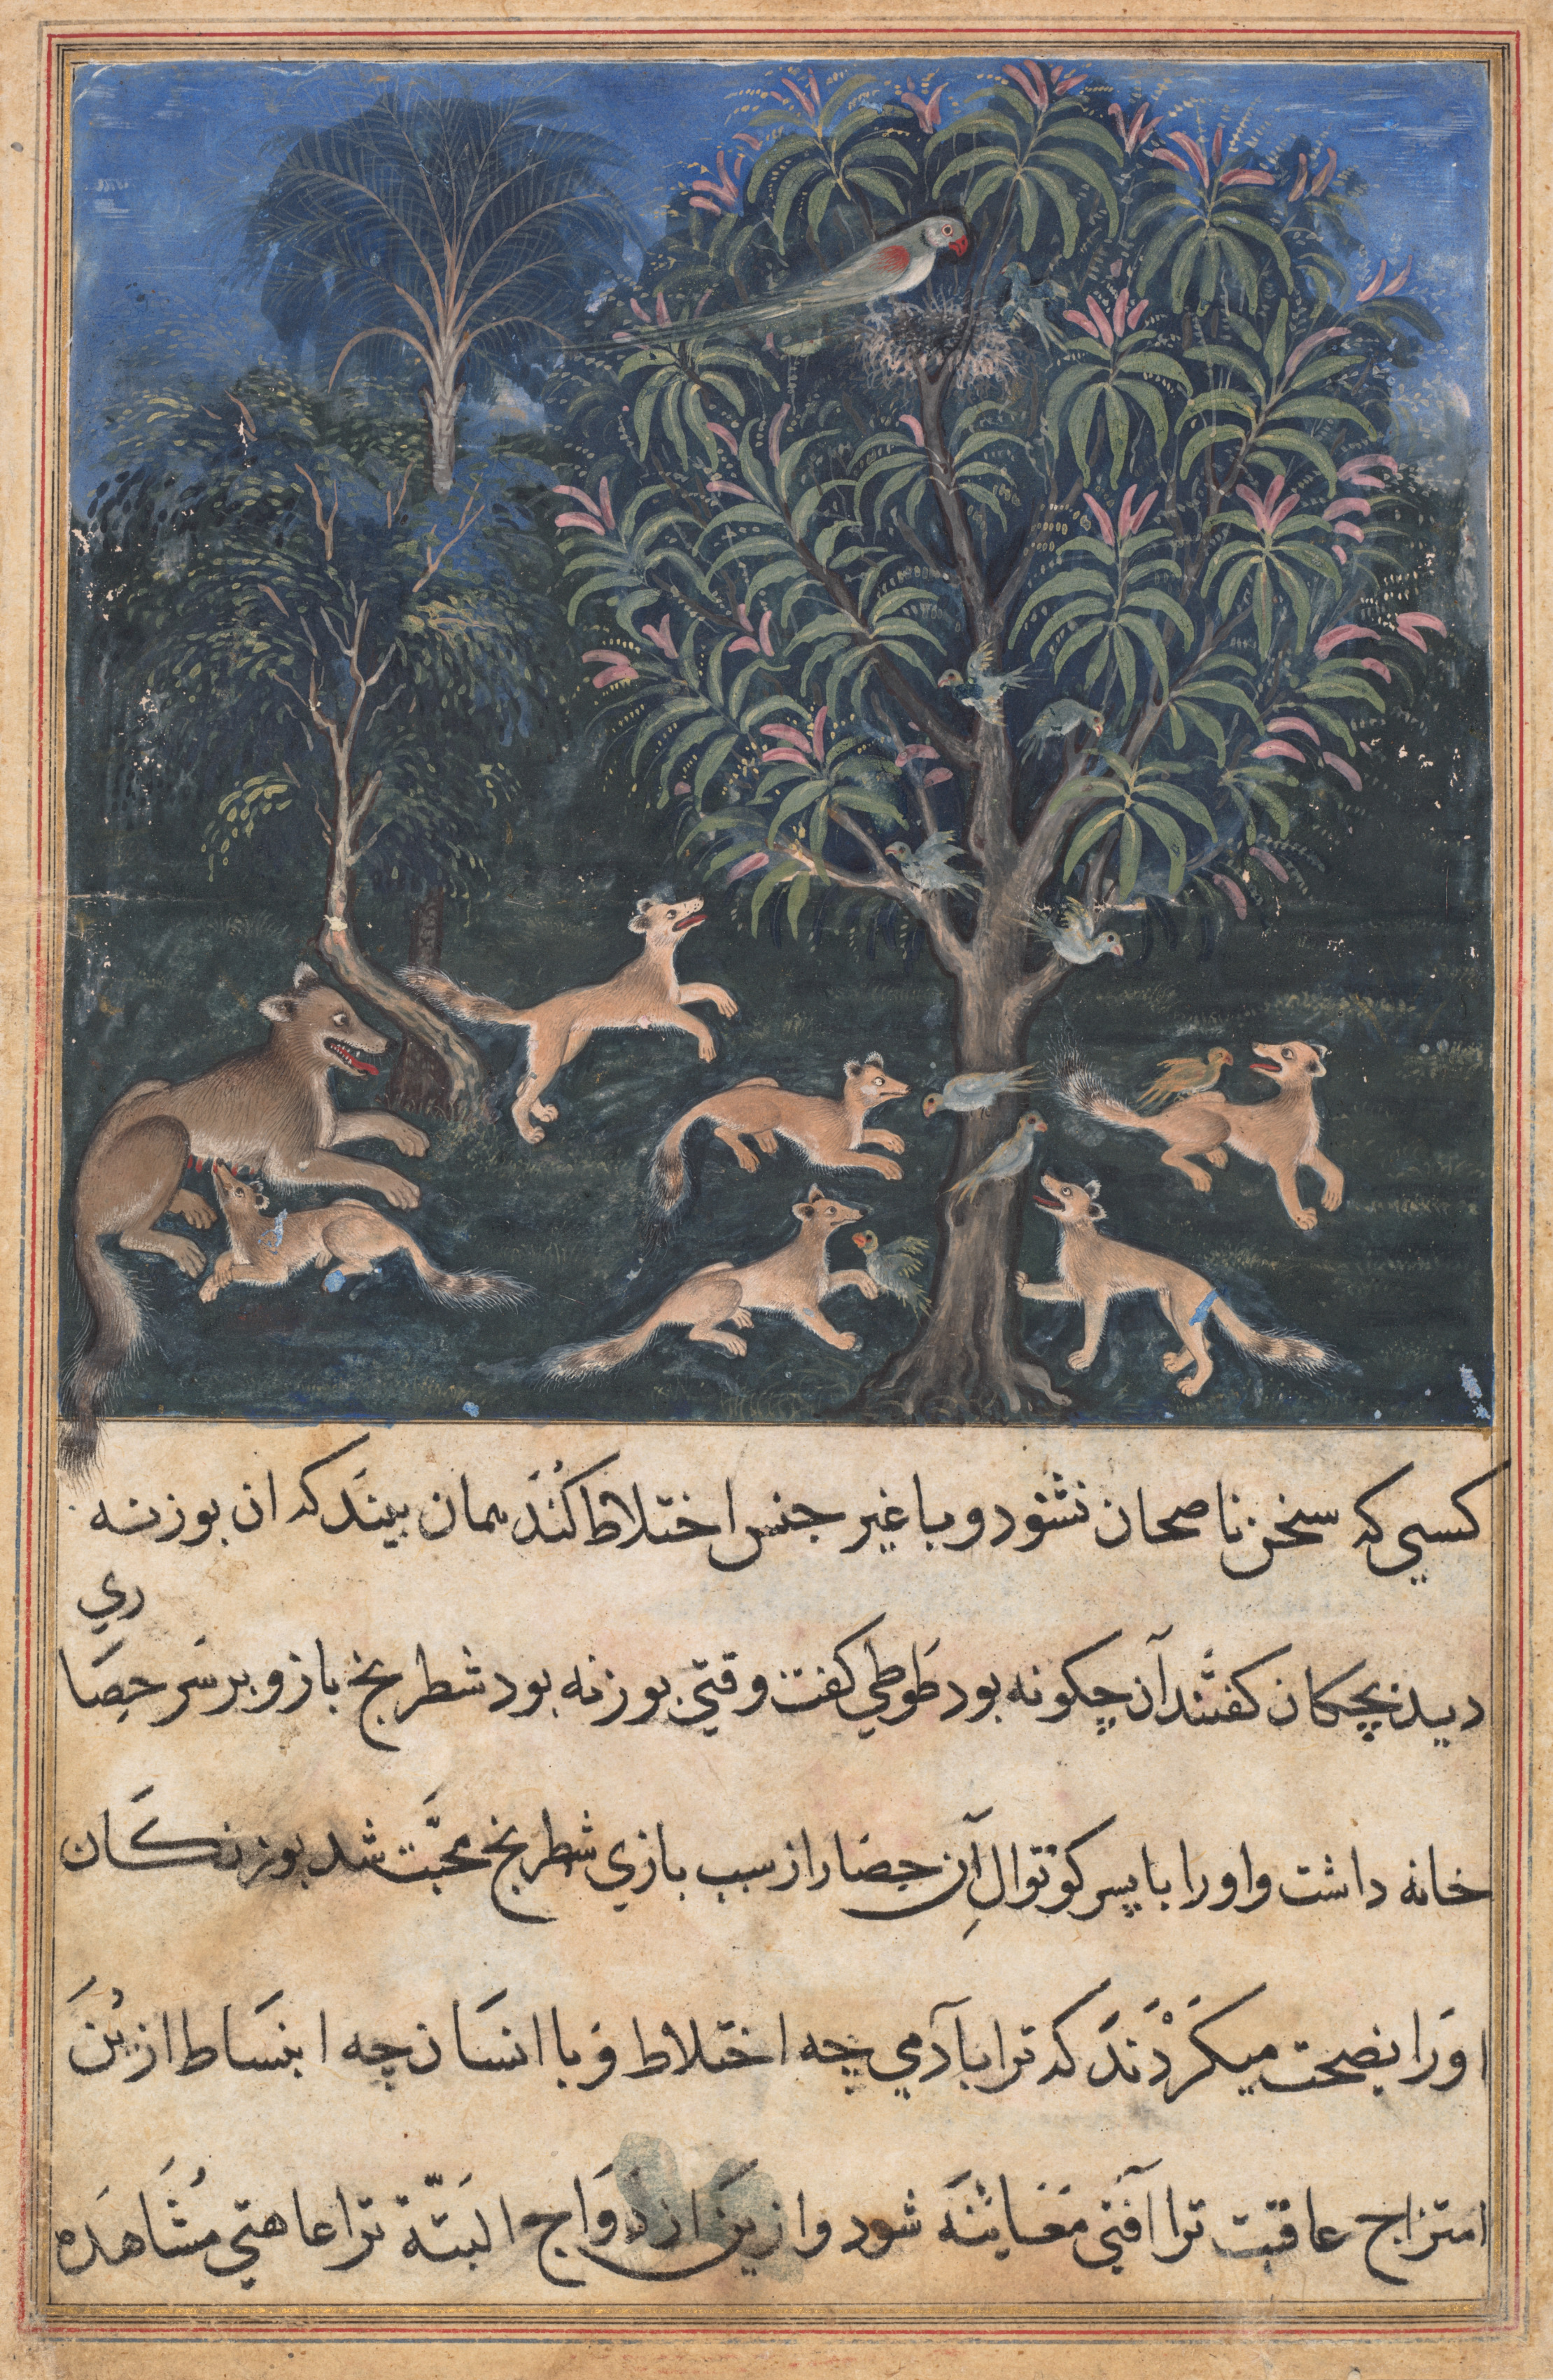 كسي كه سخن ناصحان نشنود و با غير جنس اختلاط كُنَد همان بينَد كه ان بوزنه
ديد بچكان كفتند آن چكونه بود طَوطي كفت وقتي بوزنه بود شطرنج باز و بر سَر حِصَاري
خانه داشت و او را با پسر كوتوالِ آن حصَار از سبب بازي شطرنج محبَّت شد بوزنكَان
اوَرا نصيحت ميكَرْدَنَد كه ترا با آدمي چه اختلاط وَ با انسَان چه انبسَاط ازين
امتزاج عاقبت ترا آفتي مَعَاينَه شود و ازين ازدوَاج البَتّه ترا عاهتي مُشَاهَده